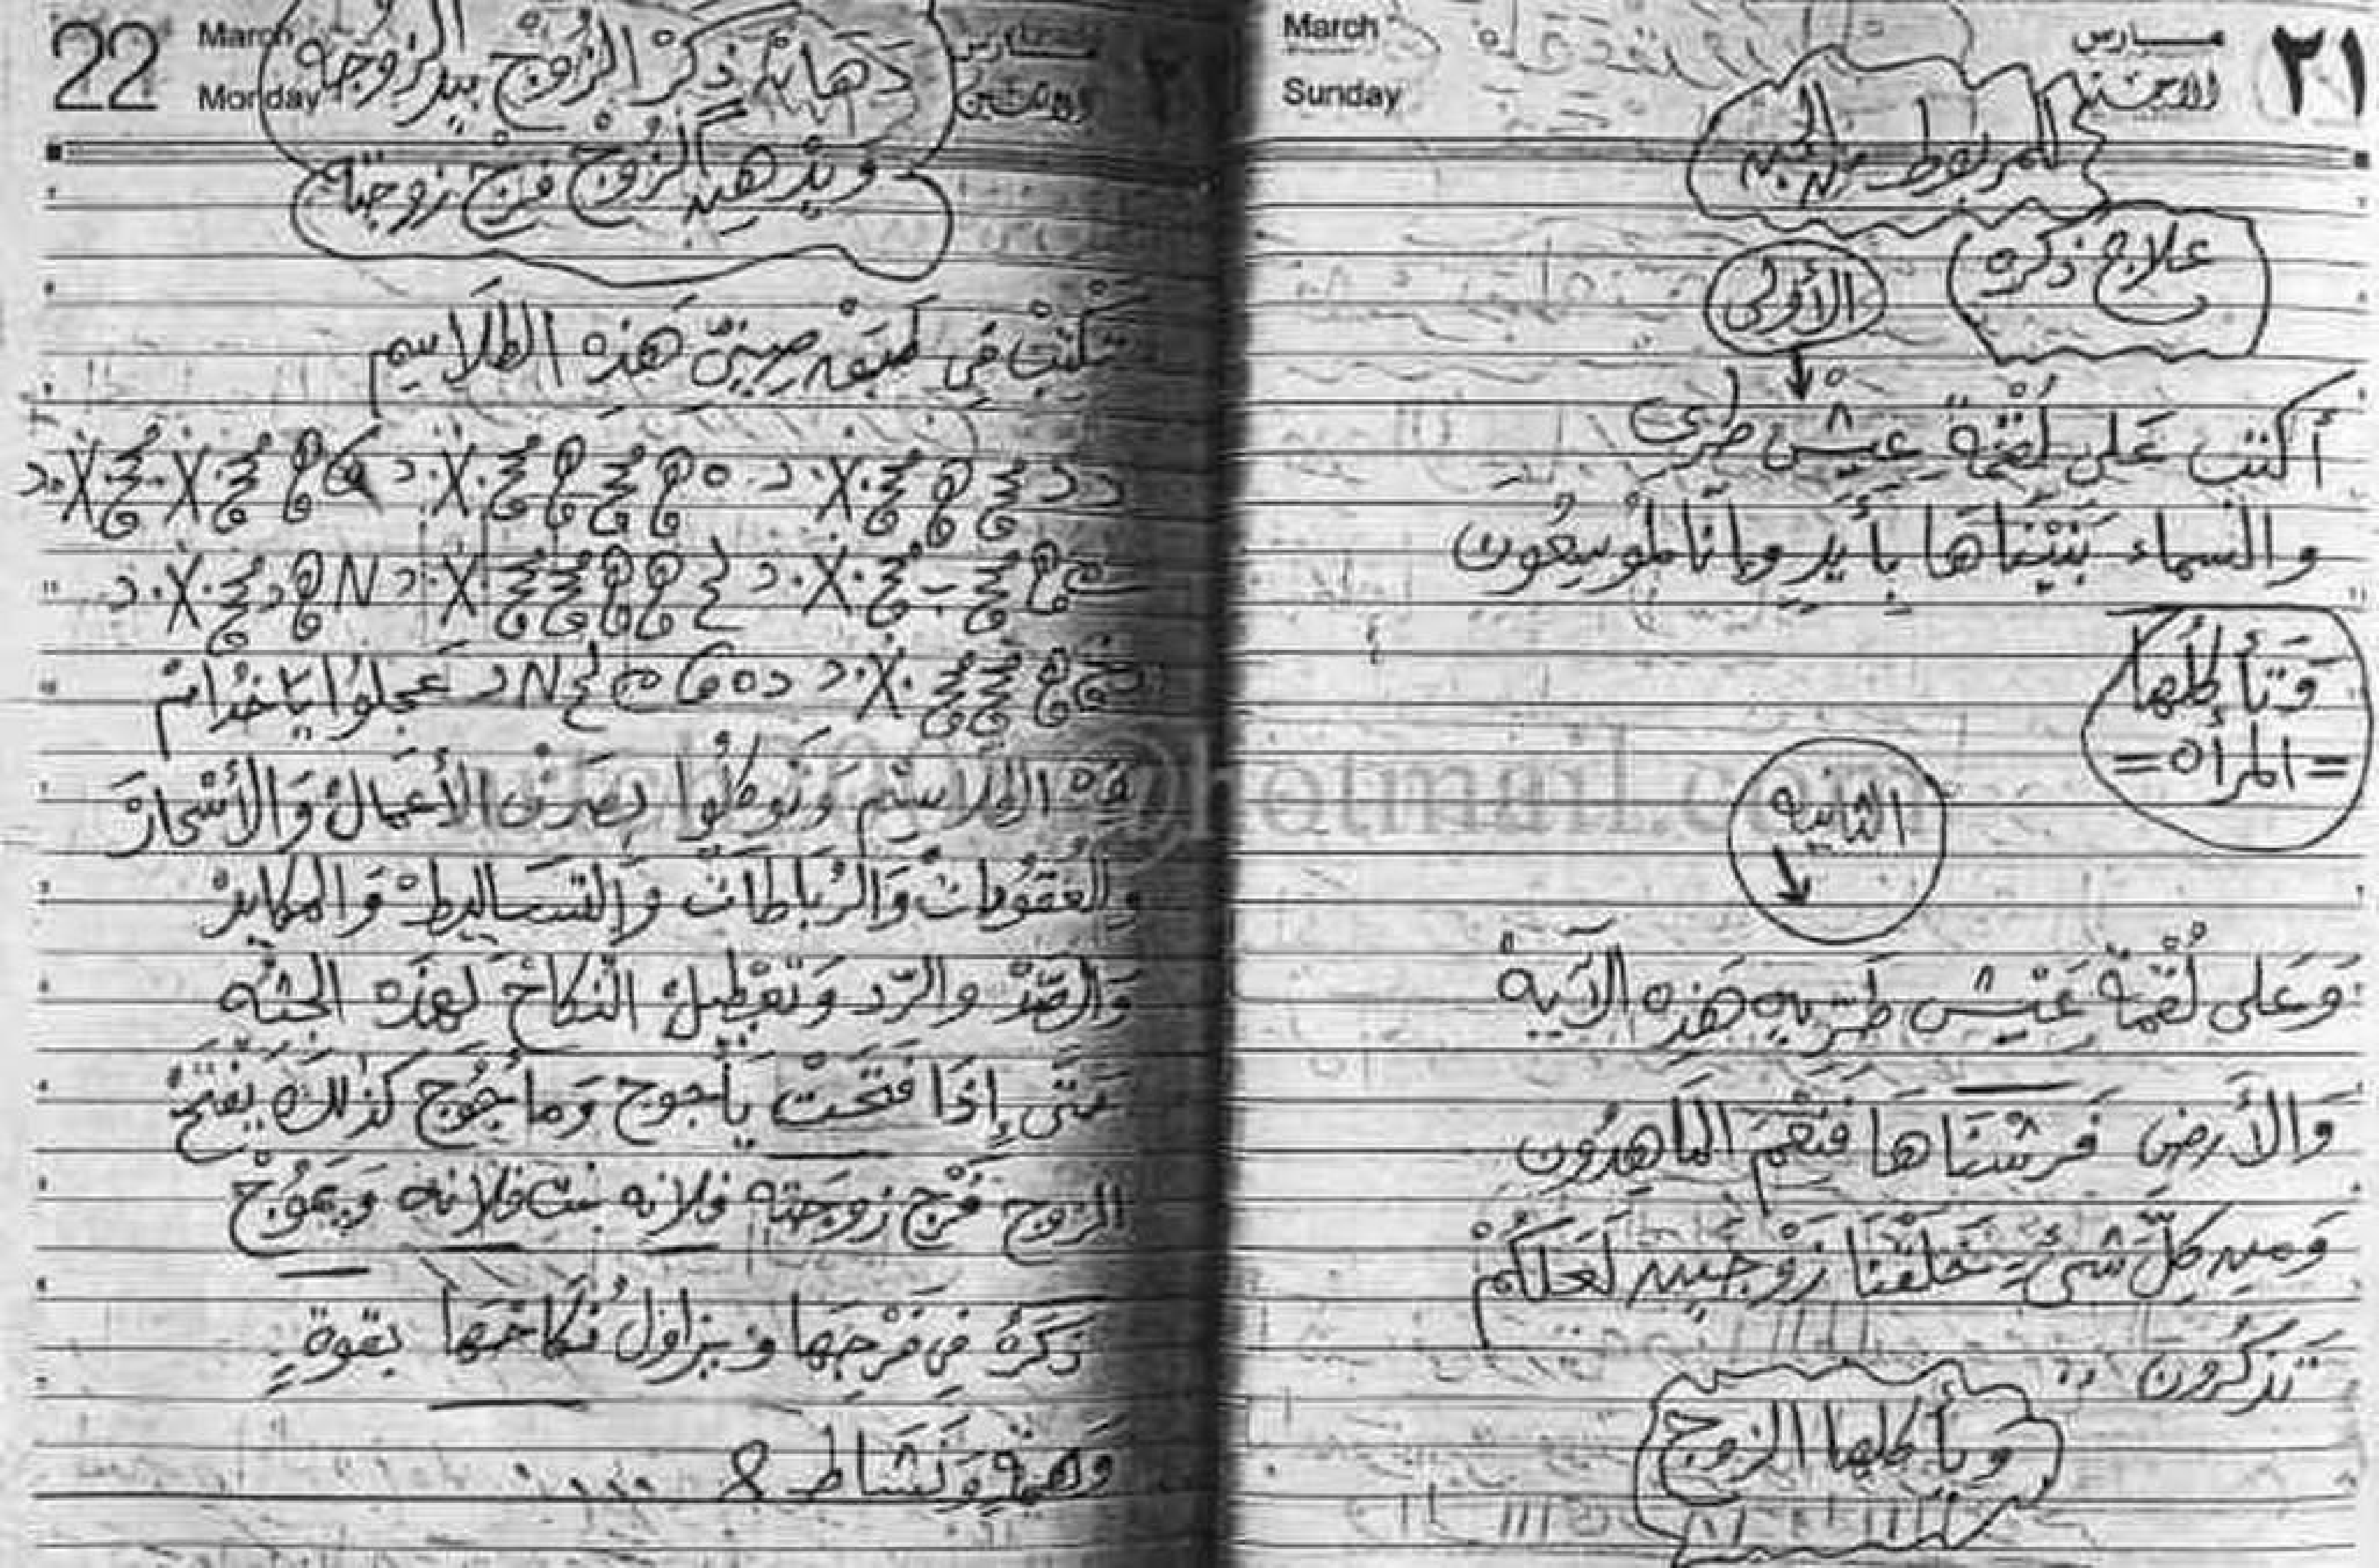 ٢١
مارس
الاحد
March
Sunday
للمربوط من الجن
علاج ذكره
الأولى
أكتب على لُقْمَة عيش طرى
والسماء بَنَيْنَاهَا بِأَيْيدٍ وإنا لموسِعُون
وَتأكلُها
= المرأه =
الثانيه
وَعَلى لُقمة عَيْش طَريه هَذِه الآية
وَالأرض فَرشْنَاهَا فَنِعْمَ المَاهِدُون
وَمِن كلِّ شىءٍ خَلَقْنا زَوْجَيْن لَعَلكُمْ
تَذكَّرُون
ويأكلها الزوج
22
March
Monday
مارس
الاثنين
دهان ذكر الزوج بيد الزوجه
ويدهن الزوج فرج زوجته
تكتب في طبق صينيّ هَذه الطَلاسِم
عجلوا يا خدام
هذه الطلاسِم وَتوكلوا بصرف الأعمال وَالأسْحار
والعُقوُدات وَالرُبَاطات وَالتسَاليط وَالمكايد
وَالصّد والرّد وَتعْطِيل النكاح لهَذه الجثه
حتَّى إِذَا فُتحَتْ يَأجوج وَمأجُوج كذلِكَ يَفتح
الزوج فَرْج زوجته فلانه بنت فلانه وَيموُج
ذكَرهُ فِى فَرْجِهَا ويزاول نُكاحَهَا بقوةٍ
وَهِمةٍ وَنَشَاط
@hotmail.com